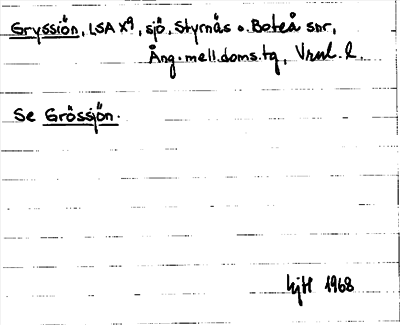 Gryssjön, LSA X9, sjö, Styrnäs o. Boteå snr,
Ång. mell. doms. tg, Vrnl. l.
Se Grössjön.
HjH 1968